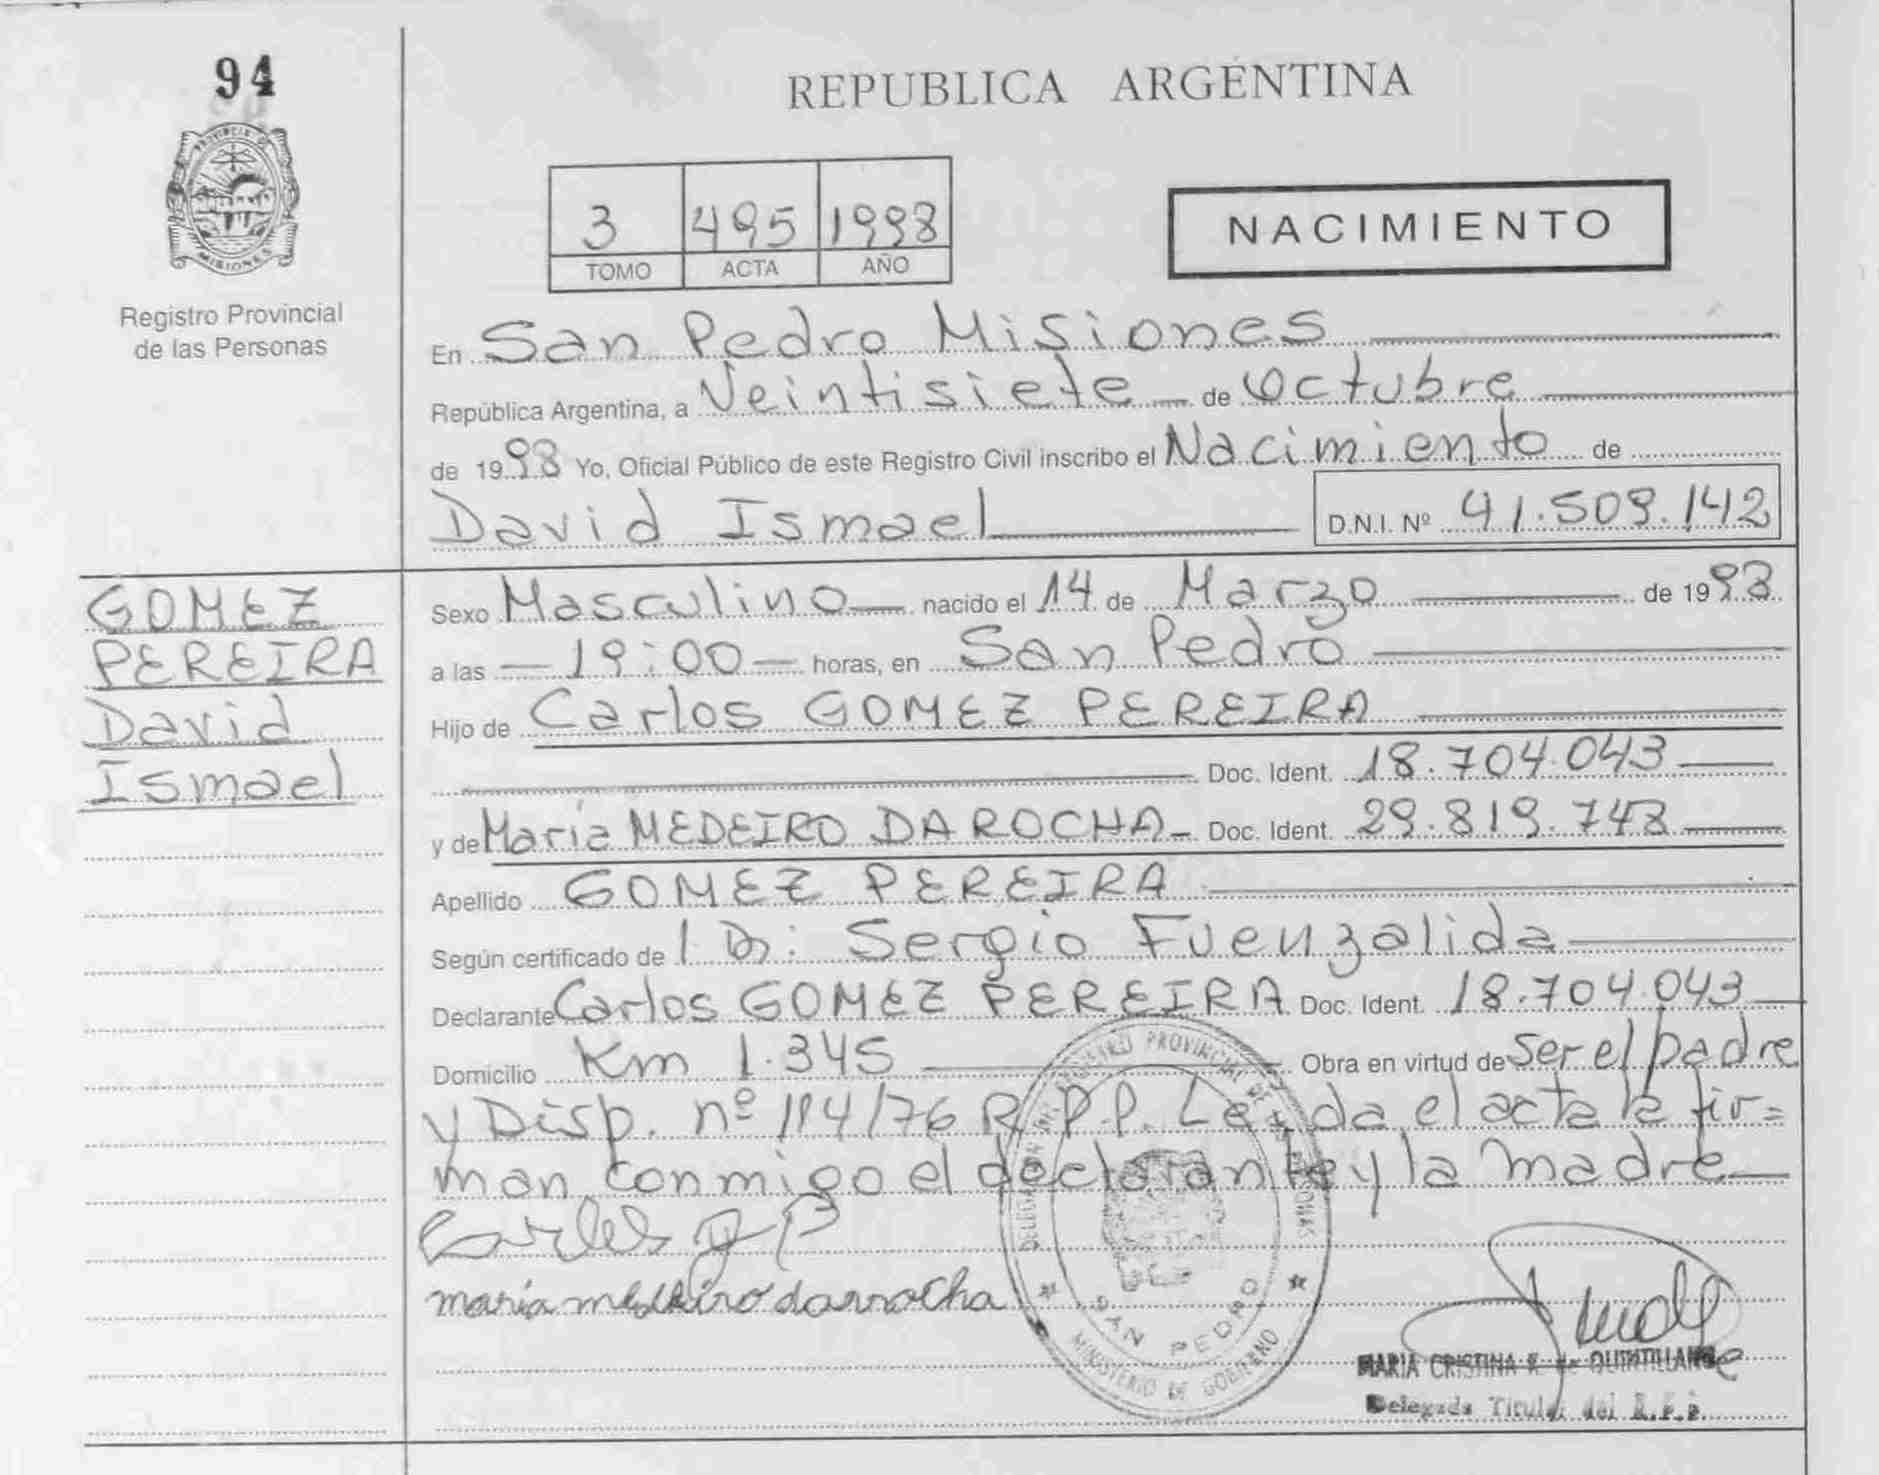 94
REPUBLICA ARGENTINA
PROVINCIA DE
MISIONES
3 495 1998
TOMO ACTA AÑO
NACIMIENTO
Registro Provincial
de las Personas
En San Pedro Misiones
República Argentina, a Veintisiete de Octubre
de 1998 Yo, Oficial Público de este Registro Civil inscribo el Nacimiento de
David Ismael D.N.I. Nº 41.509.142
GOMEZ
PEREIRA
David
Ismael
Sexo Masculino nacido el 14 de Marzo de 1998
a las 19:00 horas, en San Pedro
Hijo de Carlos GOMEZ PEREIRA
Doc. Ident. 18.704.043
y de María MEDEIRO DA ROCHA Doc. Ident. 29.819.748
Apellido GOMEZ PEREIRA
Según certificado de l Dr: Sergio Fuenzalida
Declarante Carlos GOMEZ PEREIRA Doc. Ident. 18.704.043
Domicilio Km 1.345 Obra en virtud de Ser el padre
y Disp. nº 114/76 R.P.P. Leida el acta la fir=
man conmigo el declarante y la madre
Carlos G P
maria medeiro darrocha
REGISTRO PROVINCIAL DE LAS PERSONAS
SAN PEDRO
MINISTERIO DE GOBIERNO
MARIA CRISTINA R. de QUINTILLAN
Delegada Titular del R.P.P.